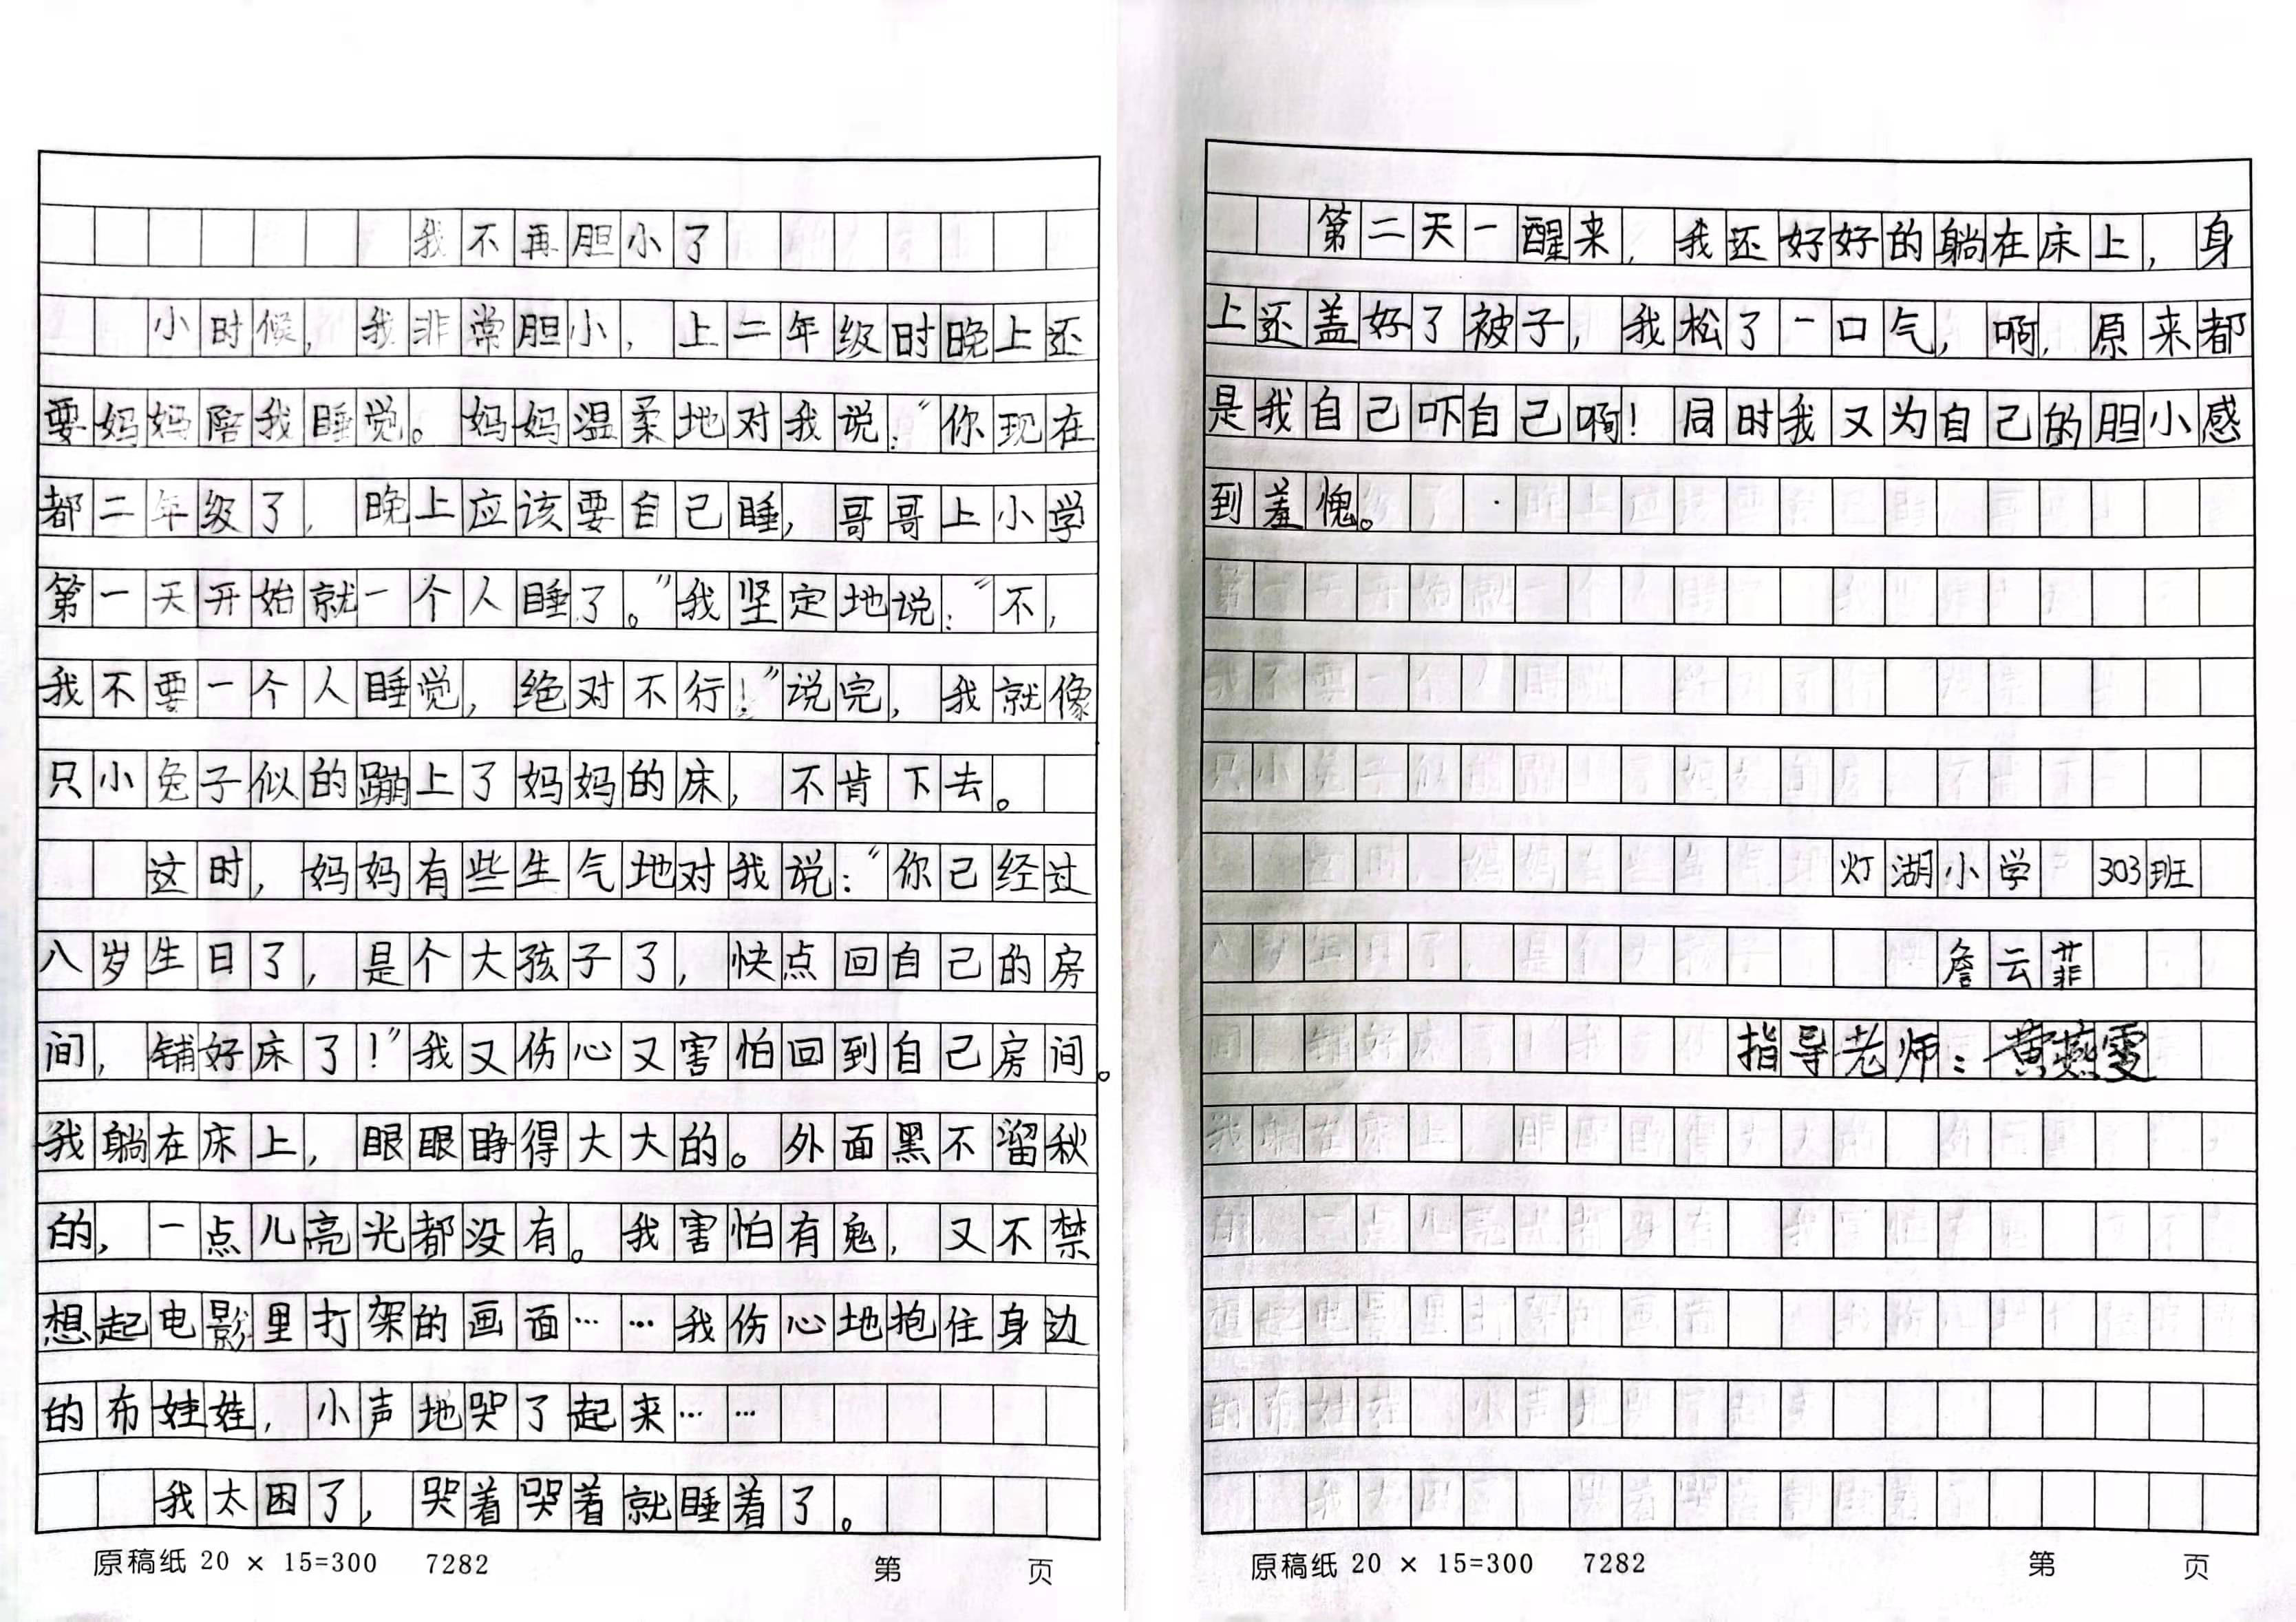 我不再胆小了
小时候，我非常胆小，上二年级时晚上还
要妈妈陪我睡觉。妈妈温柔地对我说：“你现在
都二年级了，晚上应该要自己睡，哥哥上小学
第一天开始就一个人睡了。”我坚定地说：“不，
我不要一个人睡觉，绝对不行！”说完，我就像
只小兔子似的蹦上了妈妈的床，不肯下去。
这时，妈妈有些生气地对我说：“你已经过
八岁生日了，是个大孩子了，快点回自己的房
间，铺好床了！”我又伤心又害怕回到自己房间。
我躺在床上，眼眼睁得大大的。外面黑不溜秋
的，一点儿亮光都没有。我害怕有鬼，又不禁
想起电影里打架的画面……我伤心地抱住身边
的布娃娃，小声地哭了起来……
我太困了，哭着哭着就睡着了。
原稿纸 20 × 15=300 7282 第 页
第二天一醒来，我还好好的躺在床上，身
上还盖好了被子，我松了一口气，啊，原来都
是我自己吓自己啊！同时我又为自己的胆小感
到羞愧。
灯湖小学 303班
詹云菲
指导老师：黄燕雯
原稿纸 20 × 15=300 7282 第 页